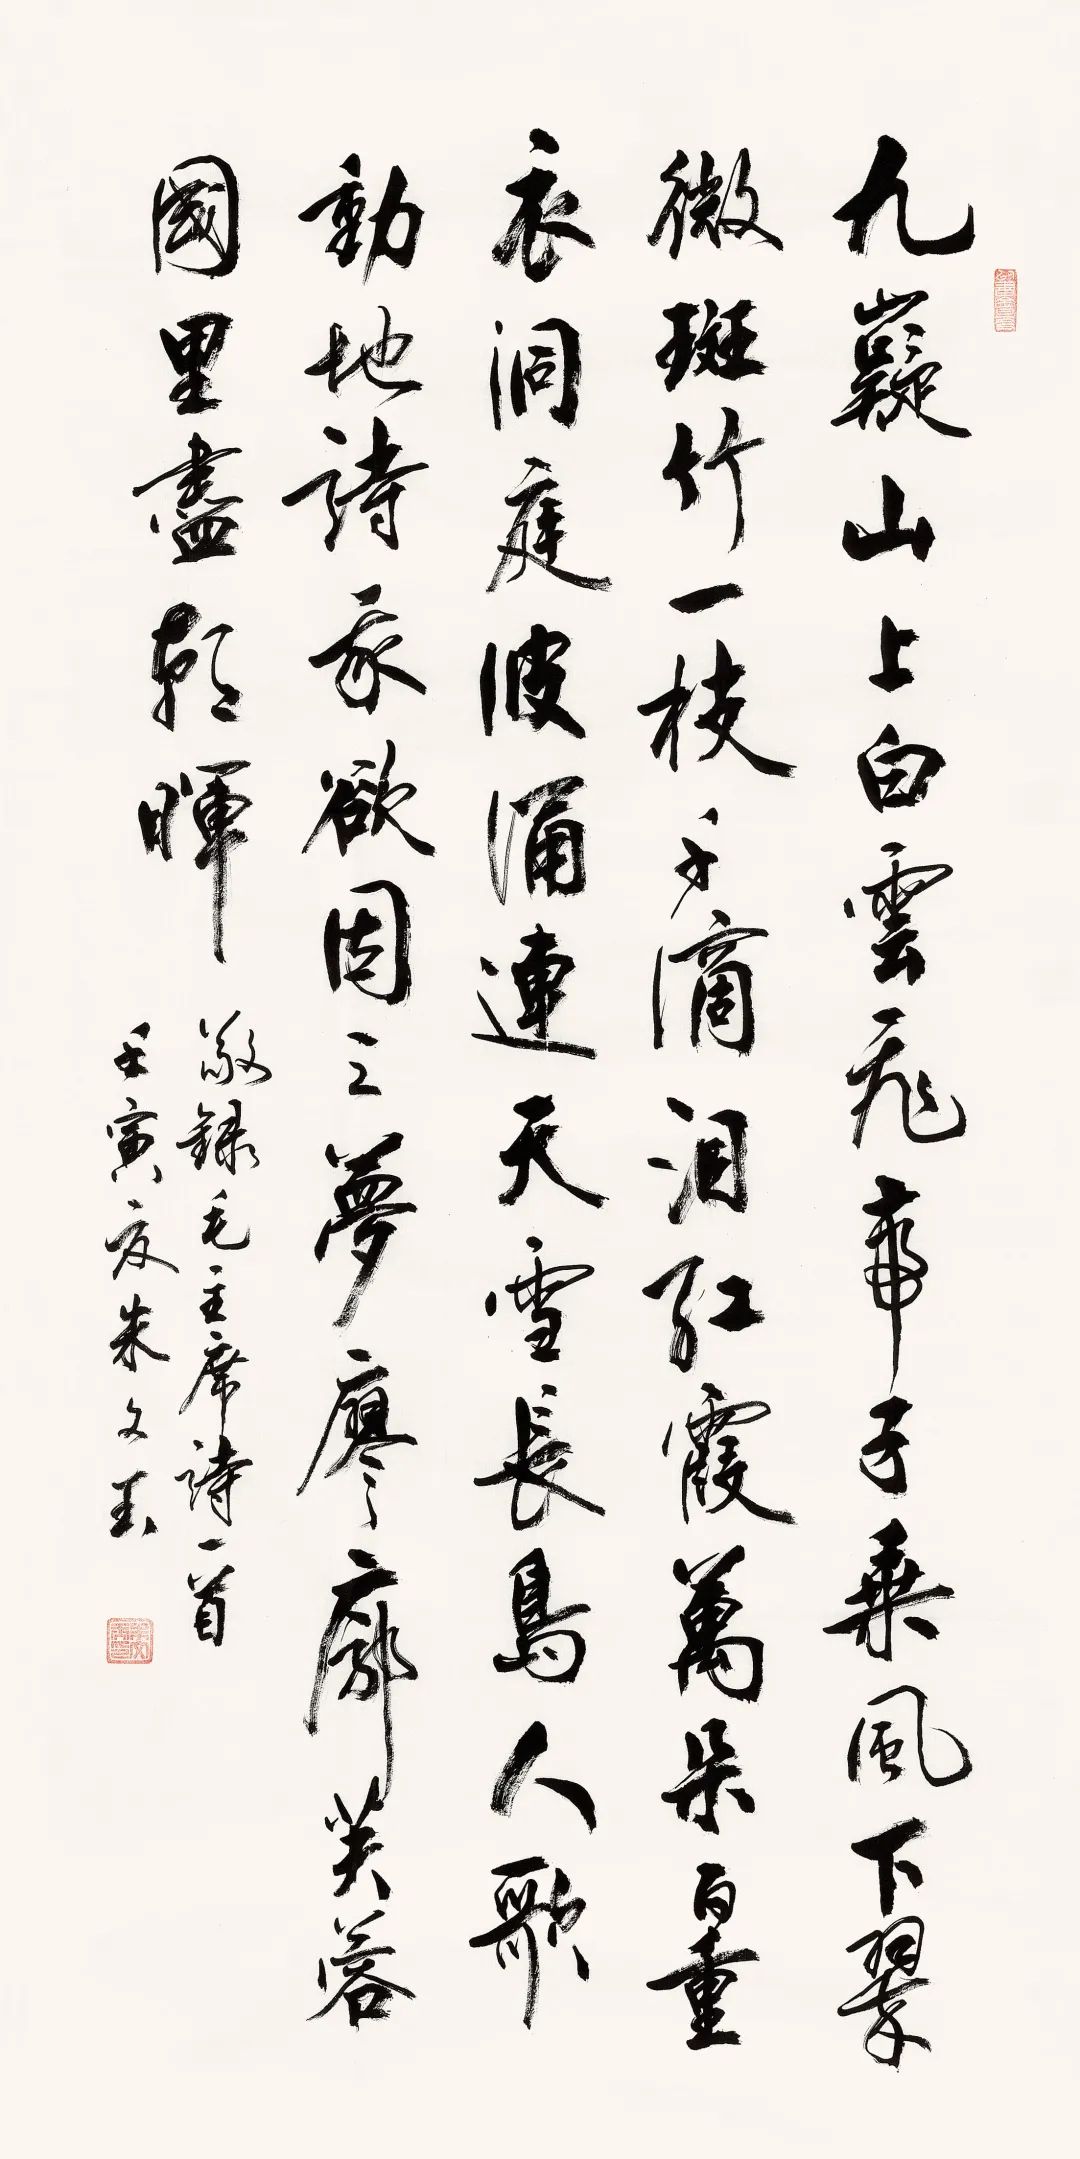 九嶷山上白雲飛帝子乘風下翠
微斑竹一枝千滴泪紅霞萬朵百重
衣洞庭波涌連天雪長島人歌
動地詩我欲因之夢廖廓芙蓉
國里盡朝暉
敬錄毛主席詩一首
壬寅夏朱文